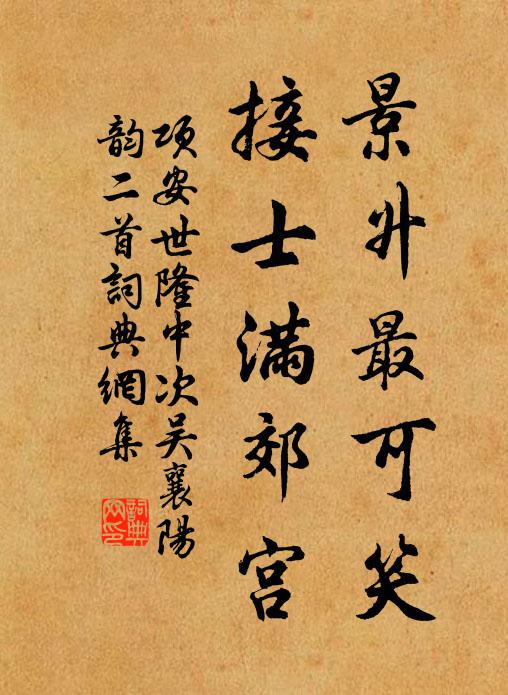 景升最可笑
接士滿郊宮
項安世隆中次吴襄陽
韵二首詞典網集
詞典
网印